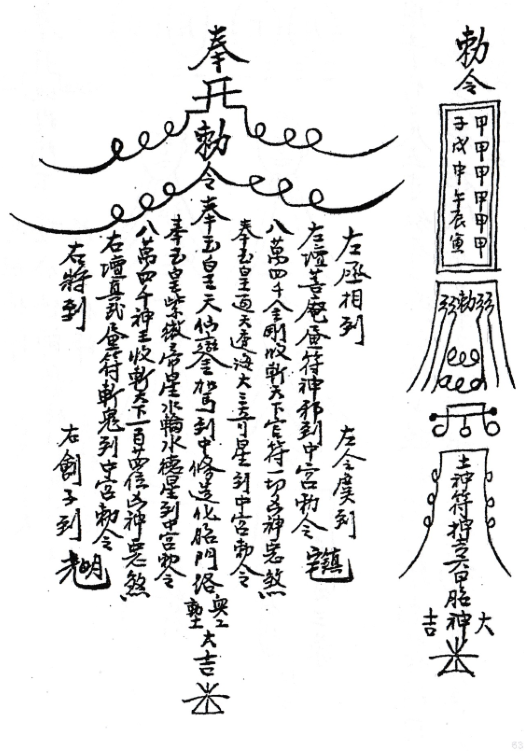 勅令
甲子
甲戌
甲申
甲午
甲辰
甲寅
弱勅弱
土神符押六甲胎神
大吉
左丞相到
左令虞到
左壇普庵 符神邪到中宮勅令
鎮宅
八萬四千金剛收斬天下官符一切凶神惡煞
奉玉皇通天達海大三奇星到中宮勅令
奉
勅令
奉玉皇天仙鑾駕到中修造化胎門路
奧工
大吉
奉玉皇紫微帝星水輪水德星到中宮勅令
八萬四千神王收斬天下一百廿四位凶神惡煞
右壇真武 符斬鬼到中宮勅令
右將到
右劊子到
63